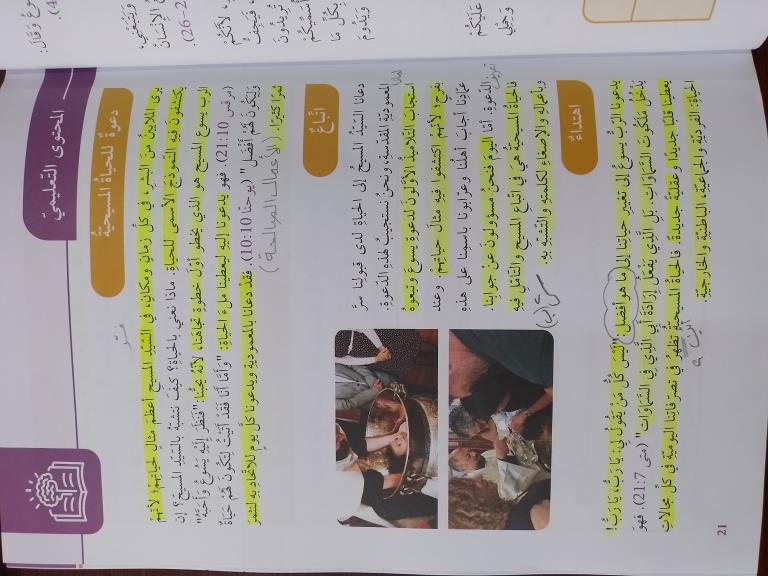 المحتوى التعليميّ
دعوةٌ للحياةُ المسيحيّة
يرى الملايينُ منَ البشر، في كلّ زمانٍ ومكانٍ، في السيّد المسيح أعظمَ مثالٍ حياتِهم؛ لأنّهم
يكتشفونَ فيه النّموذجَ الأسمى للحياة. ماذا نعني بالحياة؟ كيفَ نتشبّه بالسّيد المسيح؟ إن
الرب يسوع المسيح هو الذي يخطو أوّل خطوةٍ تجاهنا، لأنّهُ يحبّنا: "فَنَظَرَ إِلَيْهِ يَسُوعُ وَأَحَبَّهُ"
(مرقس 21:10). فهو يدعونا إليه ليعطينا ملءَ الحياة: "وَأَمَّا أَنَا فَقَدْ أَتَيْتُ لِتَكُونَ لَهُمْ حَيَاةٌ
وَلِيَكُونَ لَهُمْ أَفْضَلُ" (يوحنّا 10:10). فقدْ دعانا بالمعموديةِ ويدعونا كلّ يومٍ للاتحادِ به لنثمرَ
ثمرًا كثيرًا.
(الأعمال الصالحة)
اتّباعٌ
دعانا السيّدُ المسيحُ إلى الحياةِ لدى قبولِنا سرَّ
المعموديّة المقدّسة، ونحنُ نستجيبُ لهذهِ الدّعوةِ.
استجابَ التّلاميذُ الأوّلونَ لدعوةِ يسوعَ وتبعوهُ
بفرحٍ؛ لأنّهم اكتشفوا فيهِ مثالَ حياتِهمْ. وعند
عمّادِنا أجابَ أهلُنا وعرّابونا باسمِنا على هذهِ
الدّعوة. أمّا اليوم فنحنُ مسؤولونَ عنْ جوابِنا.
فالحياةُ المسيحيّةُ هي في اتّباعِ المسيحِ والتّأملِ فيهِ
وبأعمالهِ والإصغاءِ لكلمتهِ والتّشبّهِ بهِ.
اهتداءٌ
يدعونا الربُّ يسوعُ إلى تغييرِ حياتِنا إلى ما هو أفضل: "لَيْسَ كُلُّ مَنْ يَقُولُ لِي: يَا رَبُّ، يَا رَبُّ!
يَدْخُلُ مَلَكُوتَ السَّمَاوَاتِ. بَلِ الَّذِي يَفْعَلُ إِرَادَةَ أَبِي الَّذِي فِي السَّمَاوَاتِ" (متى 21:7). فهوَ
يعطينا قلبًا جديدًا وعقليّةً جديدةً. فالحياةُ المسيحيّةُ تظهرُ في تصرفاتِنا اليوميّةِ في كلِّ مجالاتِ
الحياةِ: الفرديّةِ والجماعيّةِ، الباطنيّةِ والخارجيّةِ.
21